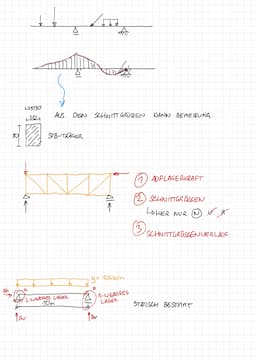 AUS DEN SCHNITTGRÖSSEN DANN BEMESSUNG
STB-TRÄGER
① AUFLAGERKRAFT
② SCHNITTGRÖSSEN
↳ HIER NUR Ⓝ
③ SCHNITTGRÖSSENVERLAUF
1-WERTIGES LAGER
2-WERTIGES LAGER
10m
STATISCH BESTIMMT